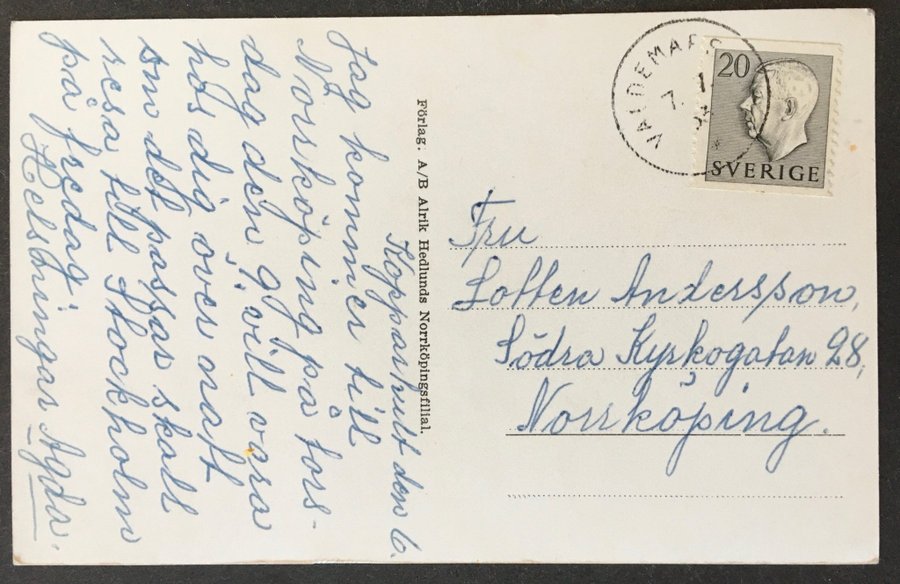 Kopparhult den 6.
Jag kommer till
Norrköping på tors-
dag den 9, vill vara
hos dig över natt
om det passar skall
resa till Stockholm
på fredag.
Helsningar Agda.
Förlag: A/B Alrik Hedlunds Norrköpingsfilial.
VALDEMARS
7. 1
20
SVERIGE
Fru
Lotten Andersson,
Södra Kyrkogatan 28,
Norrköping.